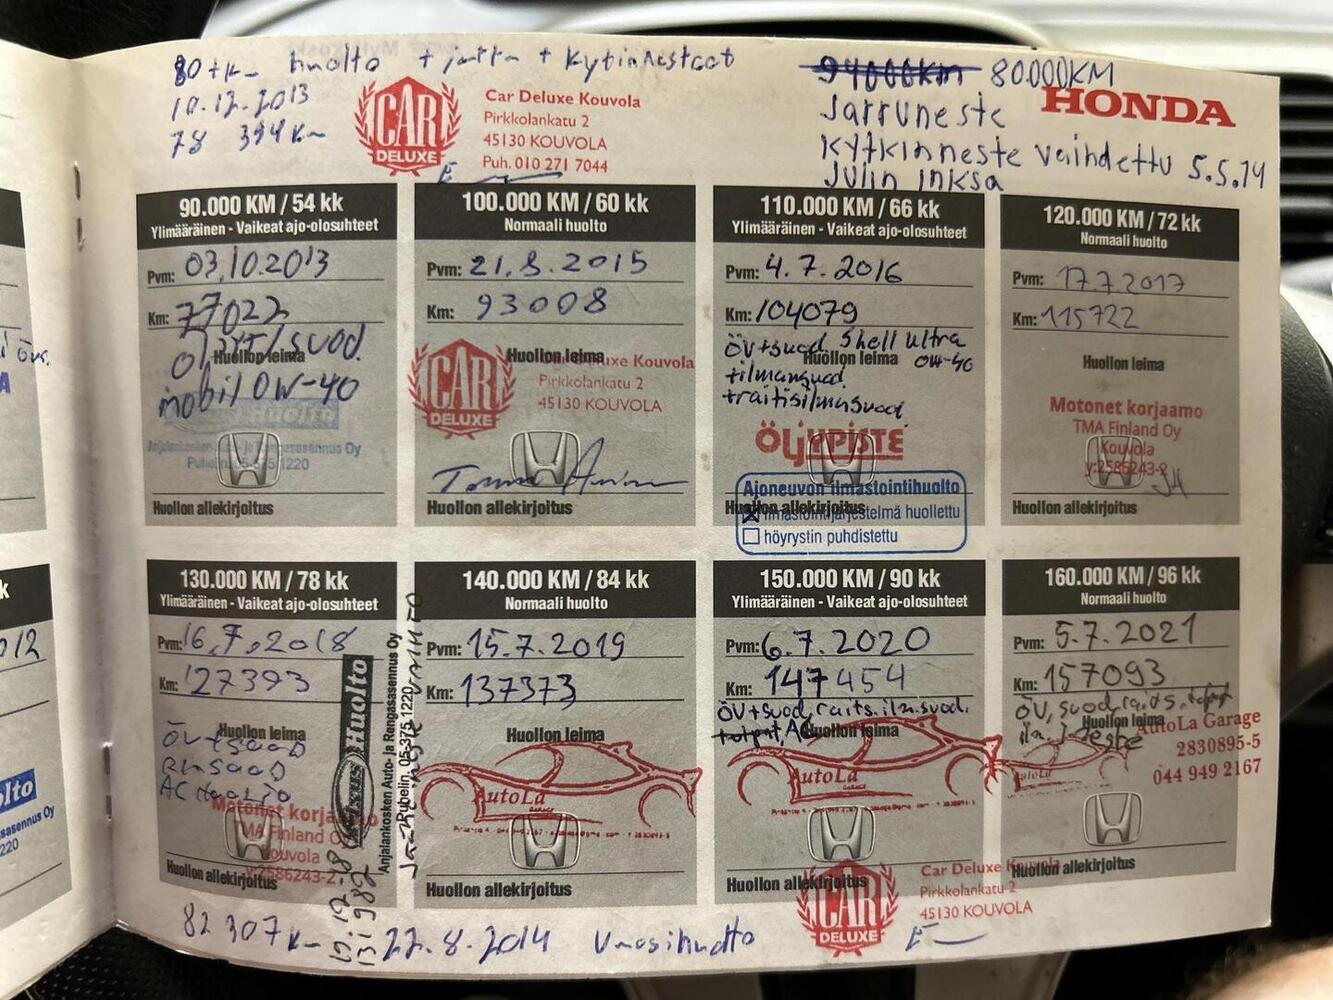 80 tk- huolto + jarru + kytinnesteet
10.12.2013
78 394 km
CAR
DELUXE
Car Deluxe Kouvola
Pirkkolankatu 2
45130 KOUVOLA
Puh. 010 271 7044
94000km 80.000KM
HONDA
Jarruneste
Kytkinneste vaihdettu 5.5.14
90.000 KM / 54 kk
Ylimääräinen - Vaikeat ajo-olosuhteet
Pvm: 03.10.2013
Km: 77022
Huollon leima
öljyt/suod.
mobil 0W-40
Huollon allekirjoitus
100.000 KM / 60 kk
Normaali huolto
Pvm: 21.8.2015
Km: 93008
Huollon leima
CAR
DELUXE
Car Deluxe Kouvola
Pirkkolankatu 2
45130 KOUVOLA
Huollon allekirjoitus
110.000 KM / 66 kk
Ylimääräinen - Vaikeat ajo-olosuhteet
Pvm: 4.7.2016
Km: 104079
Huollon leima
öv+suod. Shell Ultra
0W-40
+ilmansuod.
+raitisilmasuod
ÖLJYPISTE
Ajoneuvon ilmastointihuolto
ilmastointijärjestelmä huollettu
höyrystin puhdistettu
Huollon allekirjoitus
120.000 KM / 72 kk
Normaali huolto
Pvm: 17.7.2017
Km: 115722
Huollon leima
Motonet korjaamo
TMA Finland Oy
Kouvola
y:2586243-2
Huollon allekirjoitus
130.000 KM / 78 kk
Ylimääräinen - Vaikeat ajo-olosuhteet
Pvm: 16.7.2018
Km: 127393
Huollon leima
öv+suod
AC
Motonet korjaamo
TMA Finland Oy
Kouvola
y:2586243-2
Huollon allekirjoitus
Huolto
Anjalankosken Auto- ja Rengasasennus Oy
Puhelin. 05-375 1220
140.000 KM / 84 kk
Normaali huolto
Pvm: 15.7.2019
Km: 137373
Huollon leima
AutoLa
Huollon allekirjoitus
150.000 KM / 90 kk
Ylimääräinen - Vaikeat ajo-olosuhteet
Pvm: 6.7.2020
Km: 147454
Huollon leima
öv+suod, raits.ilm.suod.
AutoLa
Huollon allekirjoitus
160.000 KM / 96 kk
Normaali huolto
Pvm: 5.7.2021
Km: 157093
Huollon leima
öv, suod, raits.
AutoLa Garage
2830895-5
044 949 2167
AutoLa
Huollon allekirjoitus
82 307 km 22.8.2014 Vuosihuolto
CAR
DELUXE
Car Deluxe Kouvola
Pirkkolankatu 2
45130 KOUVOLA